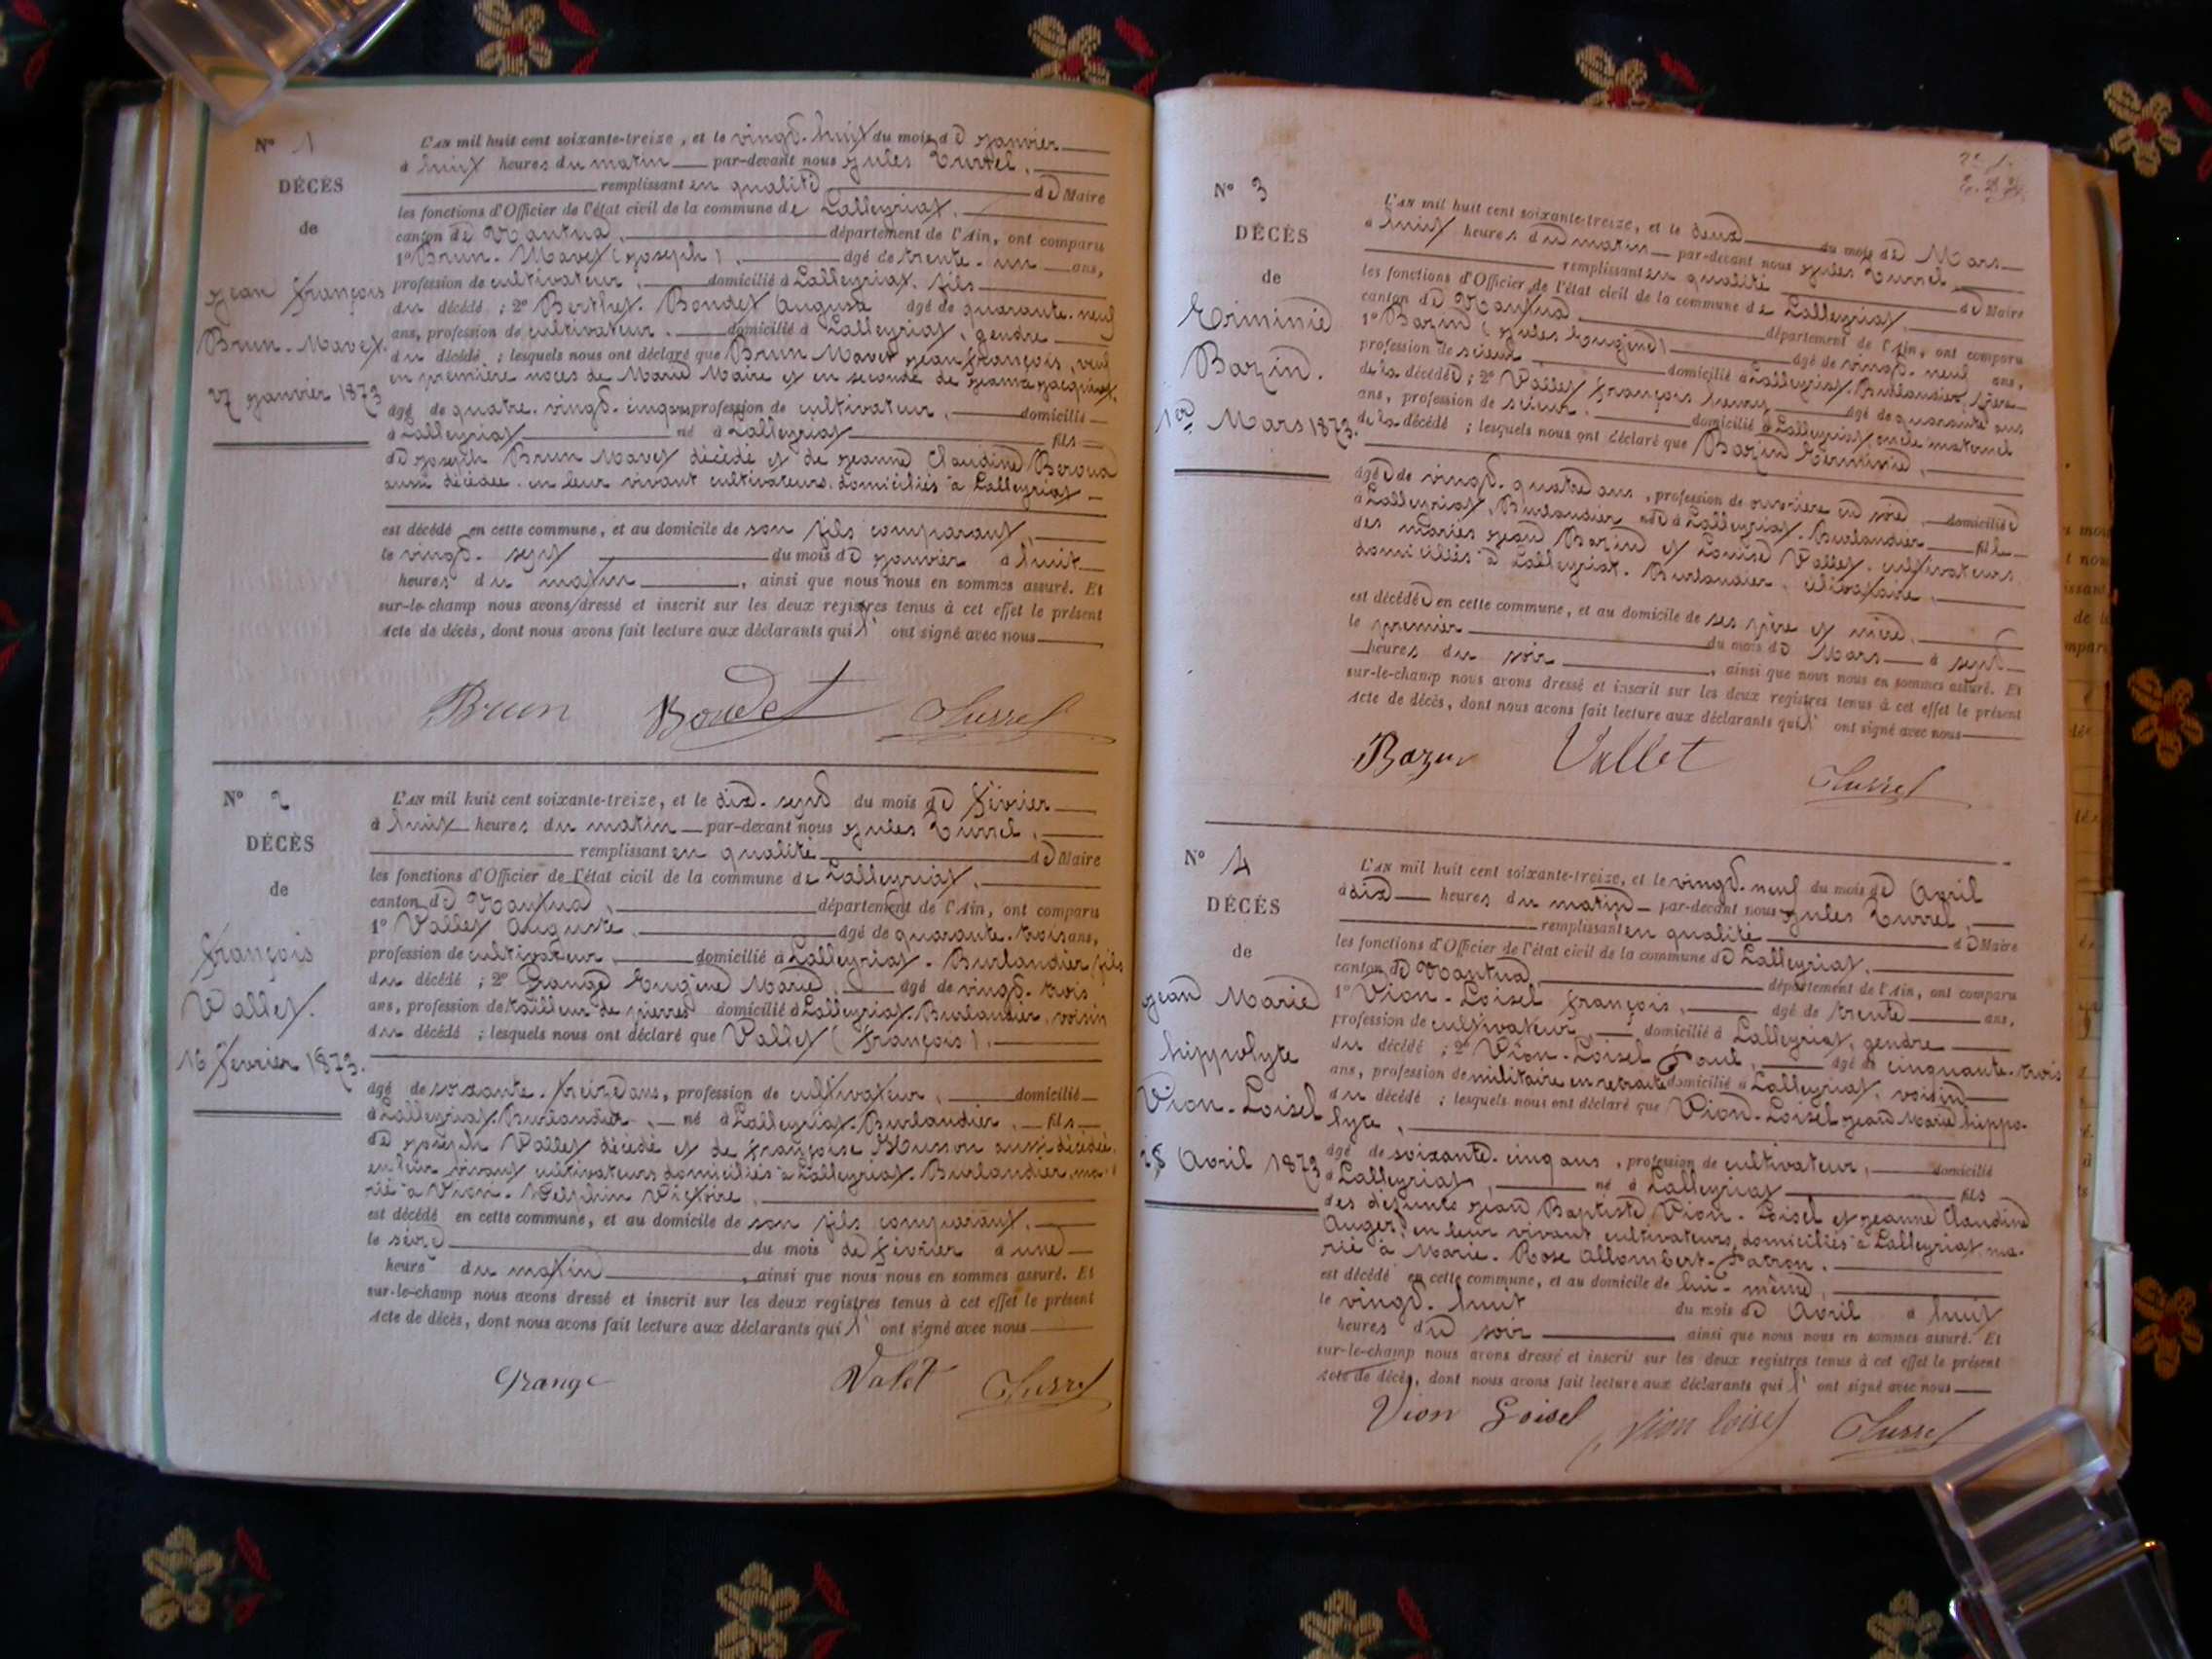 N° 1
DÉCÈS
de
Jean François
Brun-Mavet.
27 Janvier 1873
L'AN mil huit cent soixante-treize, et le vingt-huit du mois de Janvier
à huit heures du matin par-devant nous Jules Turrel,
remplissant en qualité de Maire
les fonctions d'Officier de l'état civil de la commune de Lalleyriat,
canton de Nantua, département de l'Ain, ont comparu
1° Brun-Mavet (Joseph), âgé de trente-un ans,
profession de cultivateur, domicilié à Lalleyriat, fils
du décédé ; 2° Berthet-Boudet Auguste âgé de quarante-neuf
ans, profession de cultivateur, domicilié à Lalleyriat, gendre
du décédé ; lesquels nous ont déclaré que Brun Mavet Jean François, veuf
en première noces de Marie Maire et en seconde de Jeanne Jacquinot,
âgé de quatre-vingt-cinq ans, profession de cultivateur, domicilié
à Lalleyriat né à Lalleyriat fils
de Joseph Brun Mavet décédé et de Jeanne Claudine Beroud
aussi décédée en leur vivant cultivateurs domiciliés à Lalleyriat
est décédé en cette commune, et au domicile de son fils comparant,
le vingt-sept du mois de Janvier à huit
heures du matin, ainsi que nous nous en sommes assuré. Et
sur-le-champ nous avons dressé et inscrit sur les deux registres tenus à cet effet le présent
Acte de décès, dont nous avons fait lecture aux déclarants qui l' ont signé avec nous
Brun Boudet JTurrel
N° 2
DÉCÈS
de
François
Vallet.
16 Février 1873.
L'AN mil huit cent soixante-treize, et le dix-sept du mois de Février
à huit heures du matin par-devant nous Jules Turrel,
remplissant en qualité de Maire
les fonctions d'Officier de l'état civil de la commune de Lalleyriat,
canton de Nantua, département de l'Ain, ont comparu
1° Vallet Auguste, âgé de quarante-trois ans,
profession de cultivateur, domicilié à Lalleyriat-Burlandier, fils
du décédé ; 2° Grange Eugène Marie, âgé de vingt-trois
ans, profession de tailleur de pierres domicilié à Lalleyriat-Burlandier, voisin
du décédé ; lesquels nous ont déclaré que Vallet (François),
âgé de soixante-treize ans, profession de cultivateur, domicilié
à Lalleyriat-Burlandier, né à Lalleyriat-Burlandier, fils
de Joseph Vallet décédé et de Françoise Husson aussi décédée
en leur vivant cultivateurs domiciliés à Lalleyriat-Burlandier, ma-
rié à Vion-Delphin Victoire,
est décédé en cette commune, et au domicile de son fils comparant,
le seize du mois de Février à une
heure du matin, ainsi que nous nous en sommes assuré. Et
sur-le-champ nous avons dressé et inscrit sur les deux registres tenus à cet effet le présent
Acte de décès, dont nous avons fait lecture aux déclarants qui l' ont signé avec nous
Grange Valet JTurrel
N° 3
DÉCÈS
de
Erminie
Bazin.
1er Mars 1873.
L'AN mil huit cent soixante-treize, et le deux du mois de Mars
à huit heures du matin par-devant nous Jules Turrel,
remplissant en qualité de Maire
les fonctions d'Officier de l'état civil de la commune de Lalleyriat,
canton de Nantua département de l'Ain, ont comparu
1° Bazin (Jules Eugène) âgé de vingt-neuf ans,
profession de scieur domicilié à Lalleyriat-Burlandier, frère
de la décédée ; 2° Vallet François Henry âgé de quarante ans
ans, profession de scieur, domicilié à Lalleyriat, oncle maternel
de la décédé ; lesquels nous ont déclaré que Bazin Herminie,
âgée de vingt-quatre ans, profession de ouvrière en soie, domiciliée
à Lalleyriat, Burlandier née à Lalleyriat-Burlandier fille
des mariés Jean Bazin et Louise Vallet, cultivateurs
domiciliés à Lalleyriat-Burlandier, célibataire,
est décédée en cette commune, et au domicile de ses père et mère,
le premier du mois de Mars à sept
heures du soir, ainsi que nous nous en sommes assuré. Et
sur-le-champ nous avons dressé et inscrit sur les deux registres tenus à cet effet le présent
Acte de décès, dont nous avons fait lecture aux déclarants qui l' ont signé avec nous
Bazin Vallet JTurrel
N° 4
DÉCÈS
de
Jean Marie
hippolyte
Vion-Loisel
28 Avril 1873
L'AN mil huit cent soixante-treize, et le vingt-neuf du mois de Avril
à dix heures du matin par-devant nous Jules Turrel,
remplissant en qualité de Maire
les fonctions d'Officier de l'état civil de la commune de Lalleyriat,
canton de Nantua, département de l'Ain, ont comparu
1° Vion-Loisel François, âgé de trente ans,
profession de cultivateur, domicilié à Lalleyriat, gendre
du décédé ; 2° Vion-Loisel Paul, âgé de cinquante-trois
ans, profession de militaire en retraite domicilié à Lalleyriat, voisin
du décédé ; lesquels nous ont déclaré que Vion-Loisel Jean Marie hippo-
lyte,
âgé de soixante-cinq ans, profession de cultivateur, domicilié
à Lalleyriat, né à Lalleyriat fils
des défunts Jean Baptiste Vion-Loisel et Jeanne Claudine
Auger, en leur vivant cultivateurs, domiciliés à Lalleyriat, ma-
rié à Marie-Rose Allombert-Patron.
est décédé en cette commune, et au domicile de lui-même,
le vingt-huit du mois de Avril à huit
heures du soir ainsi que nous nous en sommes assuré. Et
sur-le-champ nous avons dressé et inscrit sur les deux registres tenus à cet effet le présent
Acte de décès, dont nous avons fait lecture aux déclarants qui l' ont signé avec nous
Vion Loisel Vion loisel JTurrel